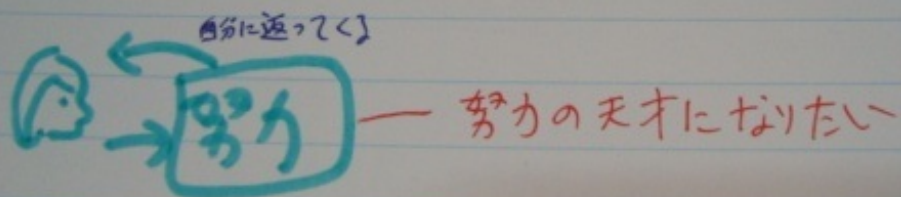 自分に返ってくる
努力 ― 努力の天才になりたい